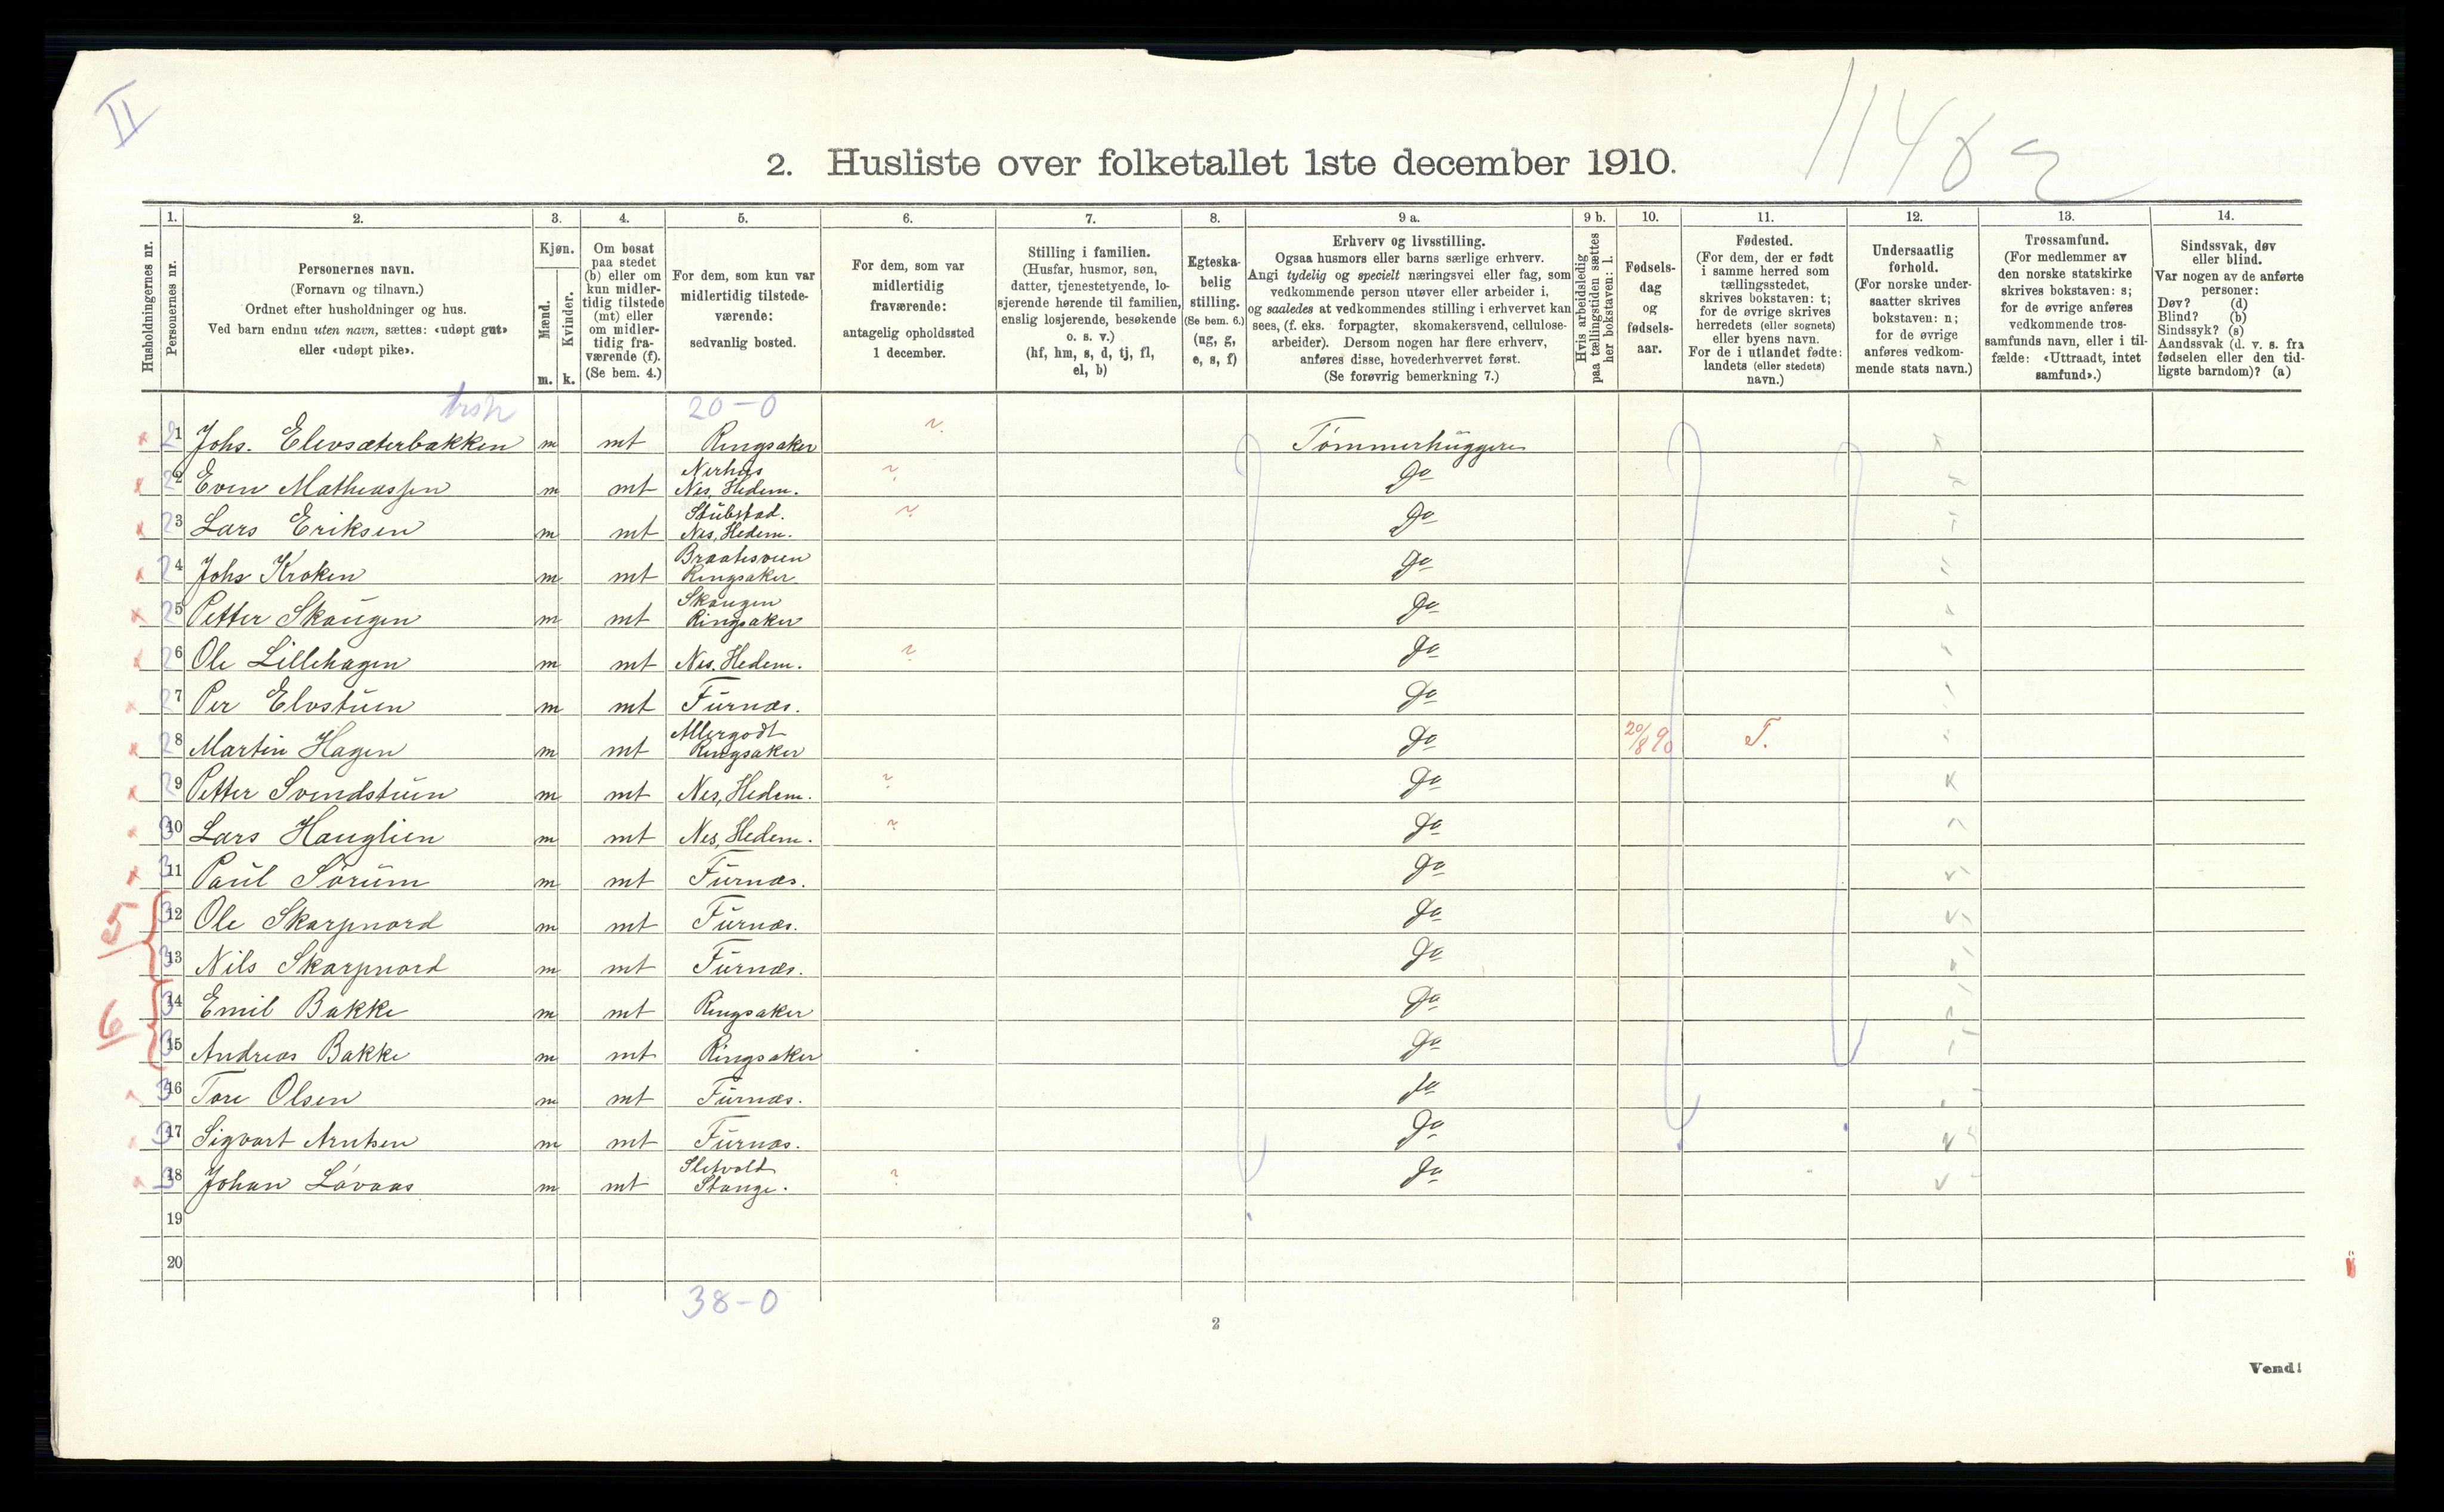 II
1148
2. Husliste over folketallet 1ste december 1910.
Husholdningernes nr.
1.
Personernes nr.
2.
Personernes navn.
(Fornavn og tilnavn.)
Ordnet efter husholdninger og hus.
Ved barn endnu uten navn, sættes: «udøpt gut»
eller «udøpt pike».
3.
Kjøn.
Mænd.
Kvinder.
m. k.
4.
Om bosat
paa stedet
(b) eller om
kun midler-
tidig tilstede
(mt) eller
om midler-
tidig fra-
værende (f).
(Se bem. 4.)
5.
For dem, som kun var
midlertidig tilstede-
værende:
sedvanlig bosted.
6.
For dem, som var
midlertidig
fraværende:
antagelig opholdssted
1 december.
7.
Stilling i familien.
(Husfar, husmor, søn,
datter, tjenestetyende, lo-
sjerende hørende til familien,
enslig losjerende, besøkende
o. s. v.)
(hf, hm, s, d, tj, fl,
el, b)
8.
Egteska-
belig
stilling.
(Se bem. 6.)
(ug, g,
e, s, f)
9 a.
Erhverv og livsstilling.
Ogsaa husmors eller barns særlige erhverv.
Angi tydelig og specielt næringsvei eller fag, som
vedkommende person utøver eller arbeider i,
og saaledes at vedkommendes stilling i erhvervet kan
sees, (f. eks. forpagter, skomakersvend, cellulose-
arbeider). Dersom nogen har flere erhverv,
anføres disse, hovederhvervet først.
(Se forøvrig bemerkning 7.)
9 b.
Hvis arbeidsledig
paa tællingstiden sættes
her bokstaven: l.
10.
Fødsels-
dag
og
fødsels-
aar.
11.
Fødested.
(For dem, der er født
i samme herred som
tællingsstedet,
skrives bokstaven: t;
for de øvrige skrives
herredets (eller sognets)
eller byens navn.
For de i utlandet fødte:
landets (eller stedets)
navn.)
12.
Undersaatlig
forhold.
(For norske under-
saatter skrives
bokstaven: n;
for de øvrige
anføres vedkom-
mende stats navn.)
13.
Trossamfund.
(For medlemmer av
den norske statskirke
skrives bokstaven: s;
for de øvrige anføres
vedkommende tros-
samfunds navn, eller i til-
fælde: «Uttraadt, intet
samfund».)
14.
Sindssvak, døv
eller blind.
Var nogen av de anførte
personer:
Døv? (d)
Blind? (b)
Sindssyk? (s)
Aandssvak (d. v. s. fra
fødselen eller den tid-
ligste barndom)? (a)
20-0
1 Johs. Elevsæterbakken m mt Ringsaker Tømmerhuggere
2 Even Mathiassen m mt Nerhus Nes, Hedem. Do
3 Lars Eriksen m mt Stubstad. Nes, Hedem. Do
4 Johs Kroken m mt Braatesveen Ringsaker Do
5 Petter Skaugen m mt Skaugen Ringsaker Do
6 Ole Lillehagen m mt Nes. Hedem. Do
7 Per Elvstuen m mt Furnæs. Do
8 Martin Hagen m mt Allergodt Ringsaker Do 20/8 90 T.
9 Petter Svendstuen m mt Nes, Hedem. Do
10 Lars Hauglien m mt Nes, Hedem. Do
11 Paul Sørum m mt Furnæs. Do
5
12 Ole Skarpnord m mt Furnæs. Do
13 Nils Skarpnord m mt Furnæs. Do
6
14 Emil Bakke m mt Ringsaker Do
15 Andreas Bakke m mt Ringsaker Do
16 Tore Olsen m mt Furnæs. Do
17 Sigvart Arntsen m mt Furnæs. Do
18 Johan Løvaas m mt Sletvold Stange. Do
19
20
38-0
2
Vend!